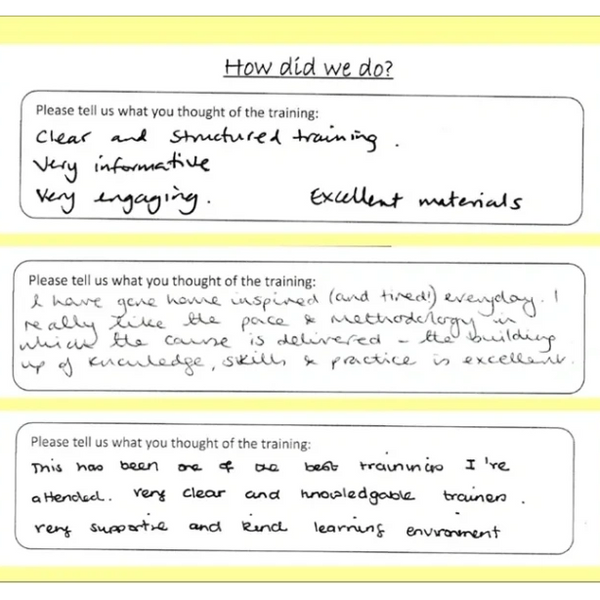 How did we do?
Please tell us what you thought of the training:
Clear and structured training.
Very informative
Very engaging. Excellent materials
Please tell us what you thought of the training:
I have gone home inspired (and tired!) everyday. I
really like the pace & methodology in
which the course is delivered - the building
up of knowledge, skills & practice is excellent.
Please tell us what you thought of the training:
This has been one of the best trainings I've
attended. Very clear and knowledgable trainers.
Very supportive and kind learning environment